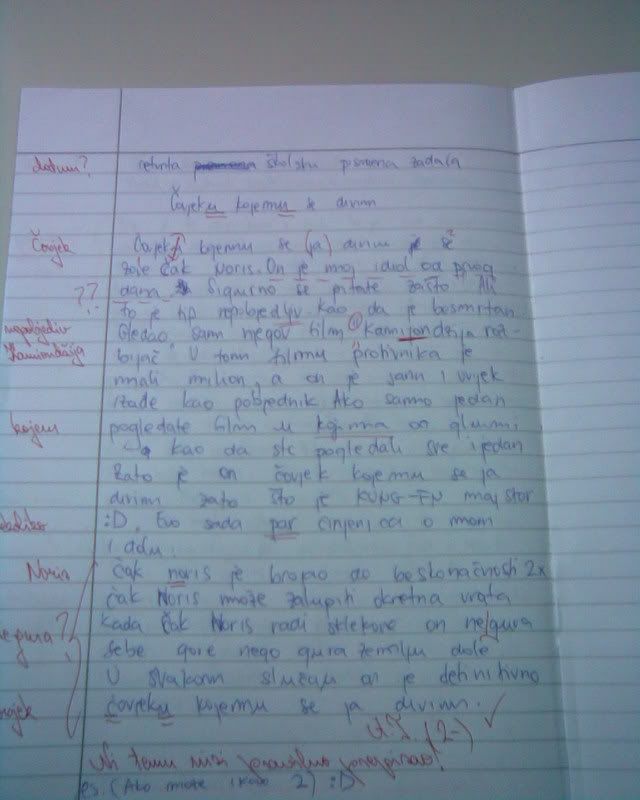 datum? četvrta školska pismena zadaća
Čovjeku kojemu se divim
Čovjek Čovjeku kojemu se (ja) divim je se
zove Čak Noris. On je moj idol od prvog
?? dana. Sigurno se pitate zašto. Ali
to je tip nepobjedljv. kao da je besmrtan
nepobjediv Gledao sam negov film "Kamijondžija raz-
Kamiondžija bijač" U tom filmu protivnika je
mali milion, a on je sam i uvjek
izađe kao pobjednik. Ako samo jedan
kojem pogledate film u kojima on glumi,
kao da ste pogledali sve ijedan
Zato je on čovjek kojemu se ja
divim zato što je KUNG-FU majstor
:D. Evo sada par činjenica o mom
idolu.
Noris Čak noris je brojao do beskonačnosti 2x
Čak Noris može zalupiti okretna vrata
Kada Čak Noris radi sklekove on ne gura
ne gura? sebe gore nego gura zemlju dole
U svakom slučaju on je definitivno
čovjek čovjeku kojemu se ja divim.
(2-)
Ali temu nisi
(Ako može ikako 2) :D